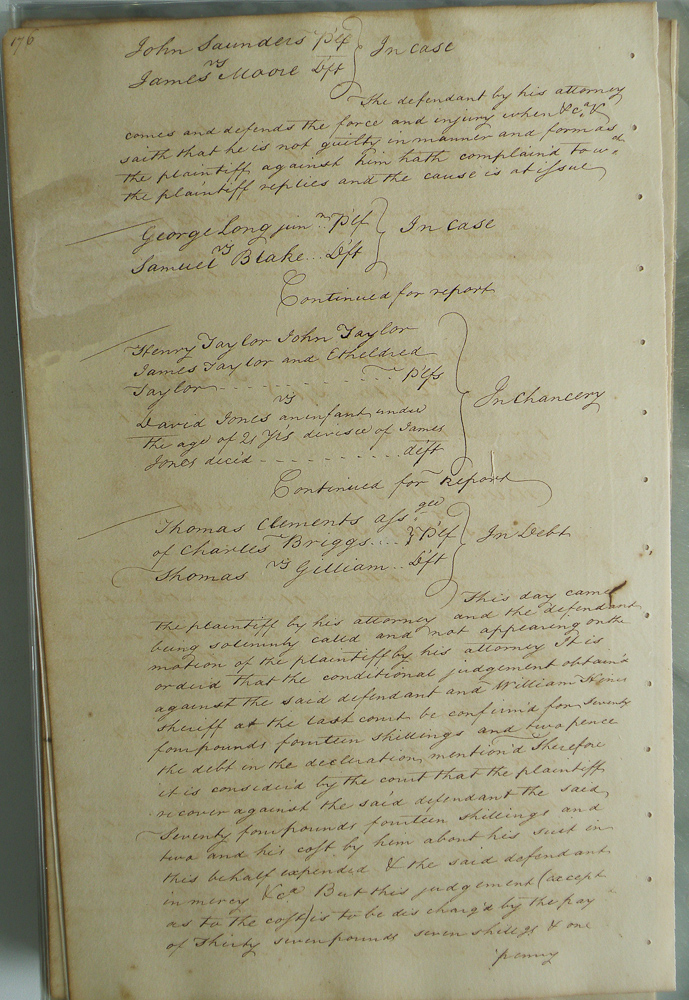 176
John Saunders Plf
vs
In case
James Moore Dft
The defendant by his attorney
comes and defends the force and injury when &c.a &
saith that he is not guilty in manner and form as
the plaintiff against him hath complain'd to wch
the plaintiff replies and the cause is at issue
George Long junr Plf
vs
In case
Samuel Blake... Dft
Continued for report
Henry Taylor John Taylor
James Taylor and Etheldred
Taylor - - - - - - - - Plfs
vs
In Chancery
David Jones an infant under
the age of 21 Yrs devisee of James
Jones decd - - - - - - - - deft
Continued for Report
Thomas Clements assgee
of Charles Briggs.... Plf
vs
In Debt
Thomas Gilliam.. Dft
This day came
the plaintiff by his attorney and the defendant
being solemnly call'd and not appearing on the
motion of the plaintiff by his attorney It is
order'd that the conditional judgement obtain'd
against the said defendant and William
sheriff at the last court be confirm'd for seventy
four pounds fourteen shillings and two pence
the debt in the declaration mention'd Therefore
it is consider'd by the court that the plaintiff
recover against the said defendant the said
Seventy four pounds fourteen shillings and
two and his cost by him about his suit in
this behalf expended & the said defendant
in mercy &ca But this judgement (except
as to the cost) is to be discharg'd by the pay
of Thirty seven pounds seven shillgs & one
penny